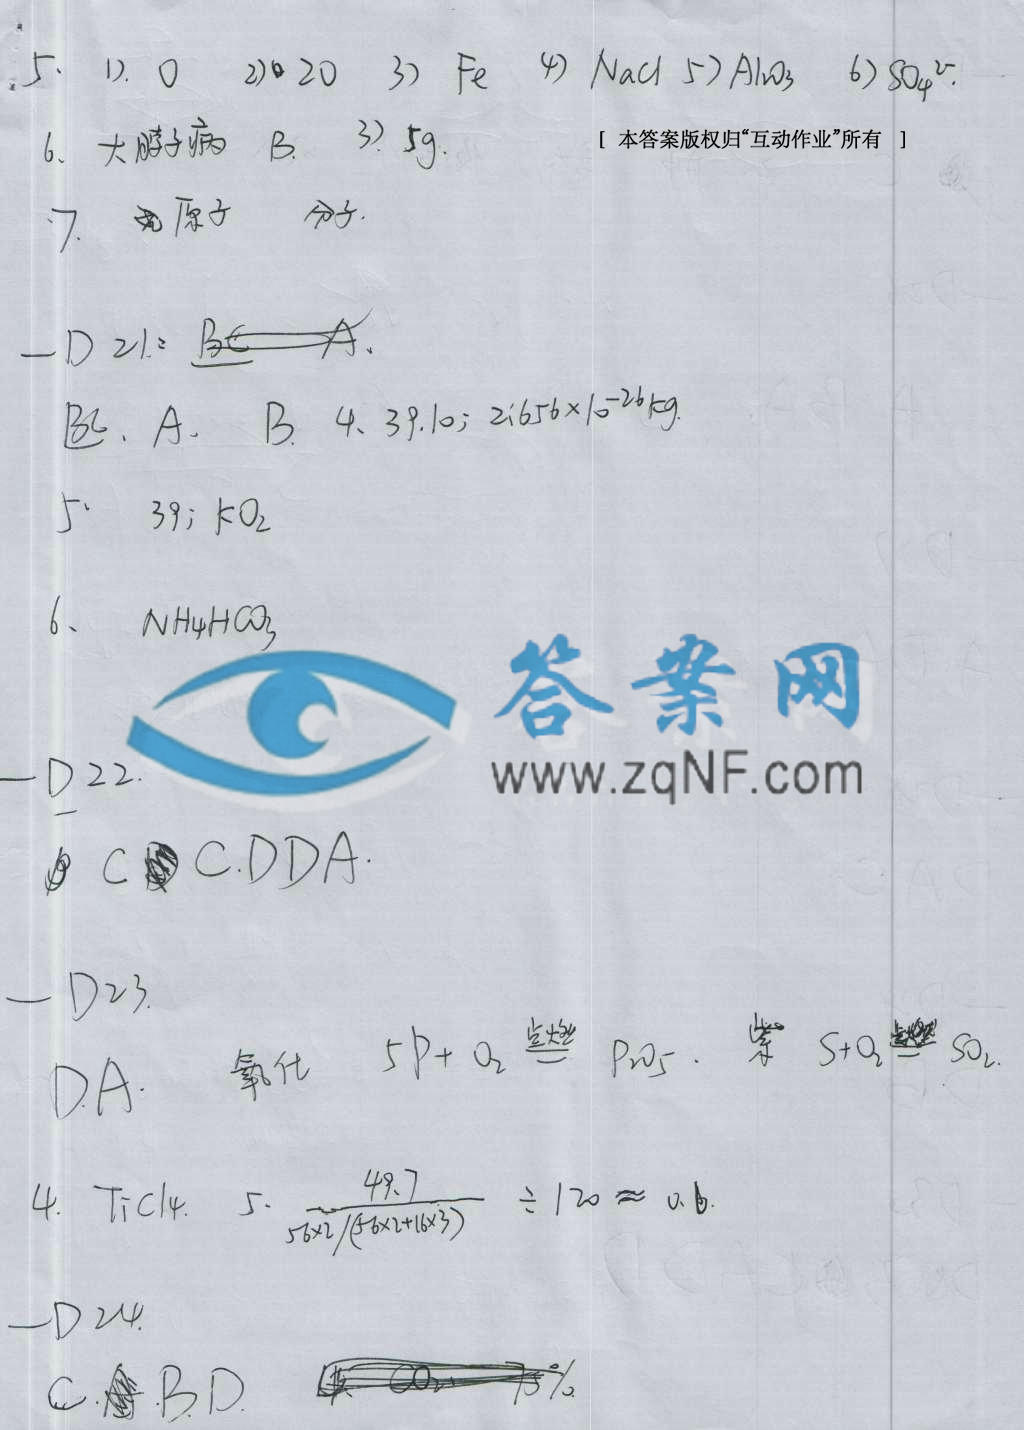 5. 1). O 2) 20 3) Fe 4) NaCl 5) Al2O3 6) SO4²⁻.
6、 大脖子病 B. 3) 5g.
[ 本答案版权归“互动作业”所有 ]
7. 原子 分子.
—D 21:
BC、 A. B. 4、39.10; 2.656×10⁻²⁶kg.
5、 39; KO2
6、 NH4HCO3
答案网
www.zqNF.com
—D 22.
C C.D D A.
—D23.
D.A. 氧化 5P+O2 点燃 P2O5. 紫 S+O2 点燃 SO2.
4. TiCl4. 5. 49.7/(56×2/(56×2+16×3)) ÷120≈0.6.
—D 24.
C. B.D.